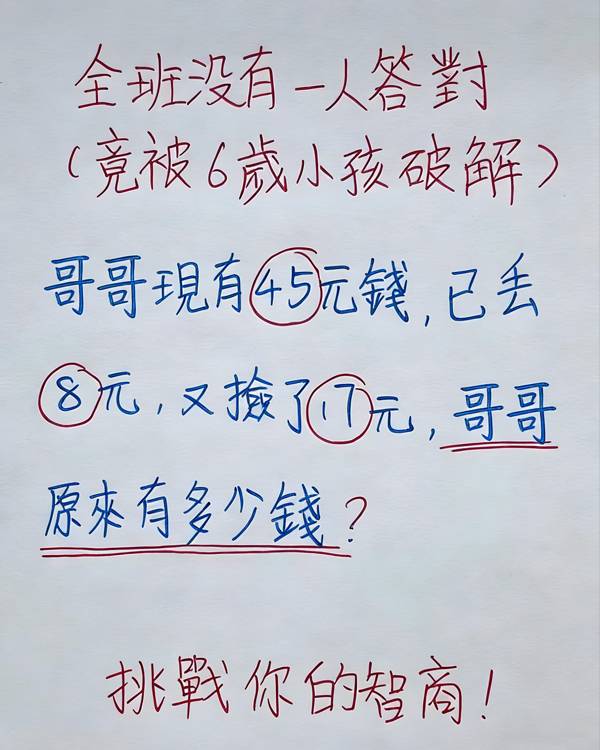 全班没有一人答對
(竟被6歲小孩破解)
哥哥現有45元錢,已丢
8元,又撿了17元,哥哥
原來有多少錢?
挑戰你的智商!